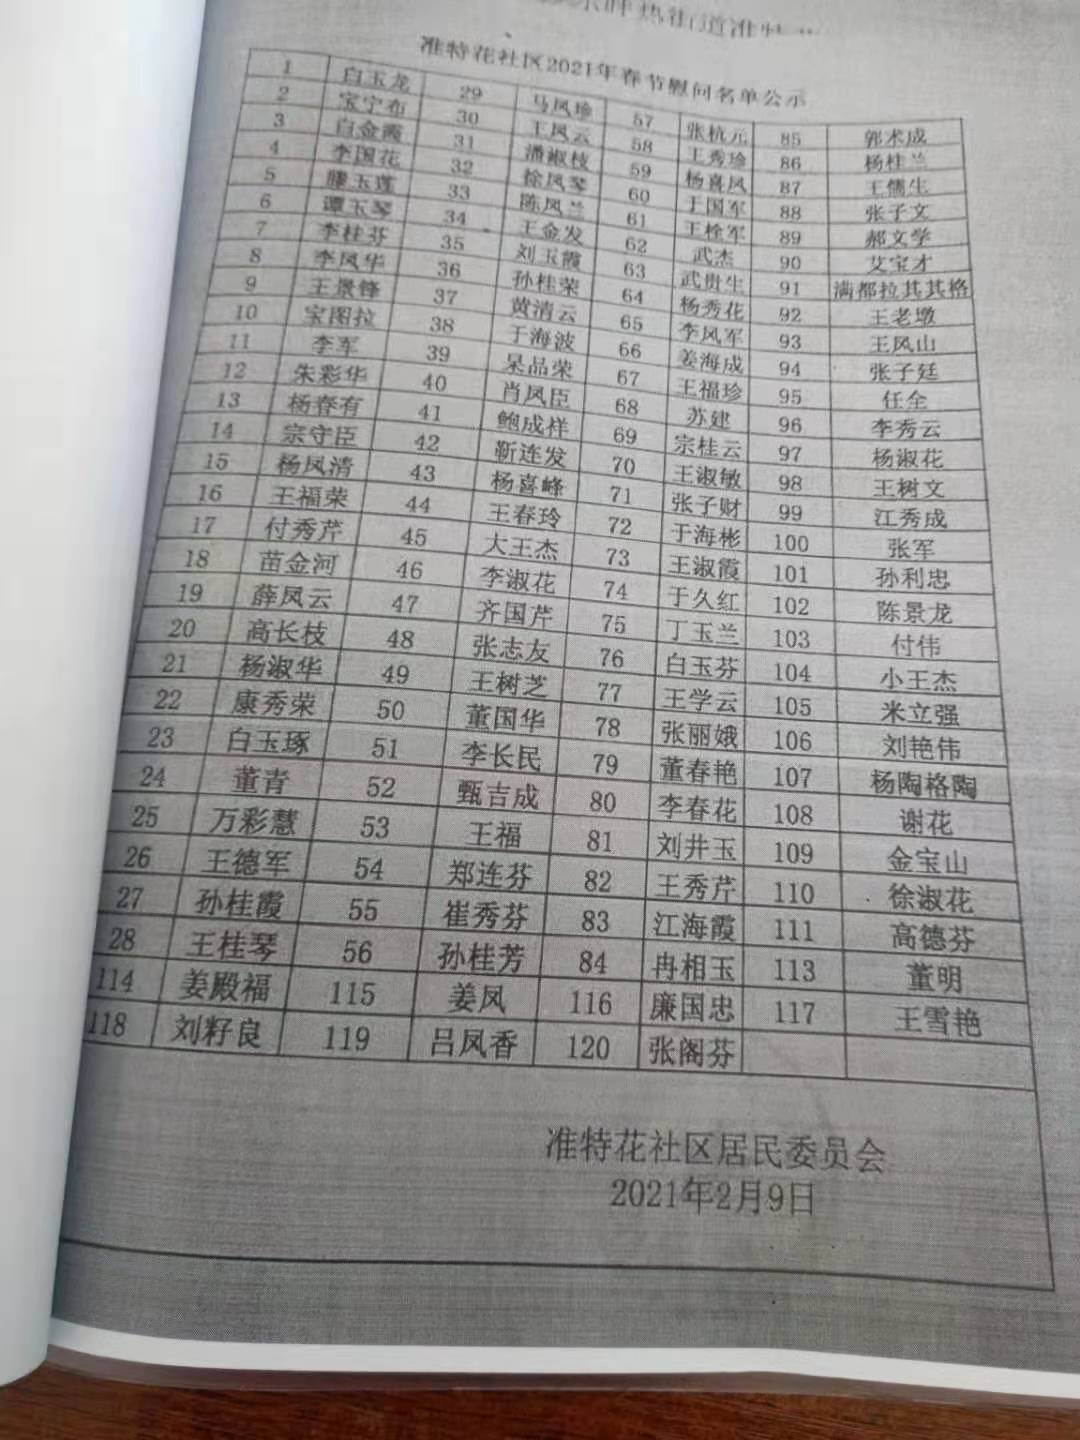 准特花社区2021年春节慰问名单公示
1 白玉龙 29 马凤珍 57 张杭元 85 郭术成
2 宝宁布 30 王凤云 58 王秀珍 86 杨桂兰
3 白金霞 31 潘淑枝 59 杨喜凤 87 王儒生
4 李国花 32 徐凤琴 60 于国军 88 张子文
5 滕玉莲 33 陈凤兰 61 王栓军 89 郝文学
6 谭玉琴 34 王金发 62 武杰 90 艾宝才
7 李桂芬 35 刘玉霞 63 武贵生 91 满都拉其其格
8 李凤华 36 孙桂荣 64 杨秀花 92 王老墩
9 王景锋 37 黄清云 65 李凤军 93 王凤山
10 宝图拉 38 于海波 66 姜海成 94 张子廷
11 李军 39 呆品荣 67 王福珍 95 任全
12 朱彩华 40 肖凤臣 68 苏建 96 李秀云
13 杨春有 41 鲍成祥 69 宗桂云 97 杨淑花
14 宗守臣 42 靳连发 70 王淑敏 98 王树文
15 杨凤清 43 杨喜峰 71 张子财 99 江秀成
16 王福荣 44 王春玲 72 于海彬 100 张军
17 付秀芹 45 大王杰 73 王淑霞 101 孙利忠
18 苗金河 46 李淑花 74 于久红 102 陈景龙
19 薛凤云 47 齐国芹 75 丁玉兰 103 付伟
20 高长枝 48 张志友 76 白玉芬 104 小王杰
21 杨淑华 49 王树芝 77 王学云 105 米立强
22 康秀荣 50 董国华 78 张丽娥 106 刘艳伟
23 白玉琢 51 李长民 79 董春艳 107 杨陶格陶
24 董青 52 甄吉成 80 李春花 108 谢花
25 万彩慧 53 王福 81 刘井玉 109 金宝山
26 王德军 54 郑连芬 82 王秀芹 110 徐淑花
27 孙桂霞 55 崔秀芬 83 江海霞 111 高德芬
28 王桂琴 56 孙桂芳 84 冉相玉 113 董明
114 姜殿福 115 姜凤 116 廉国忠 117 王雪艳
118 刘籽良 119 吕凤香 120 张阁芬
准特花社区居民委员会
2021年2月9日